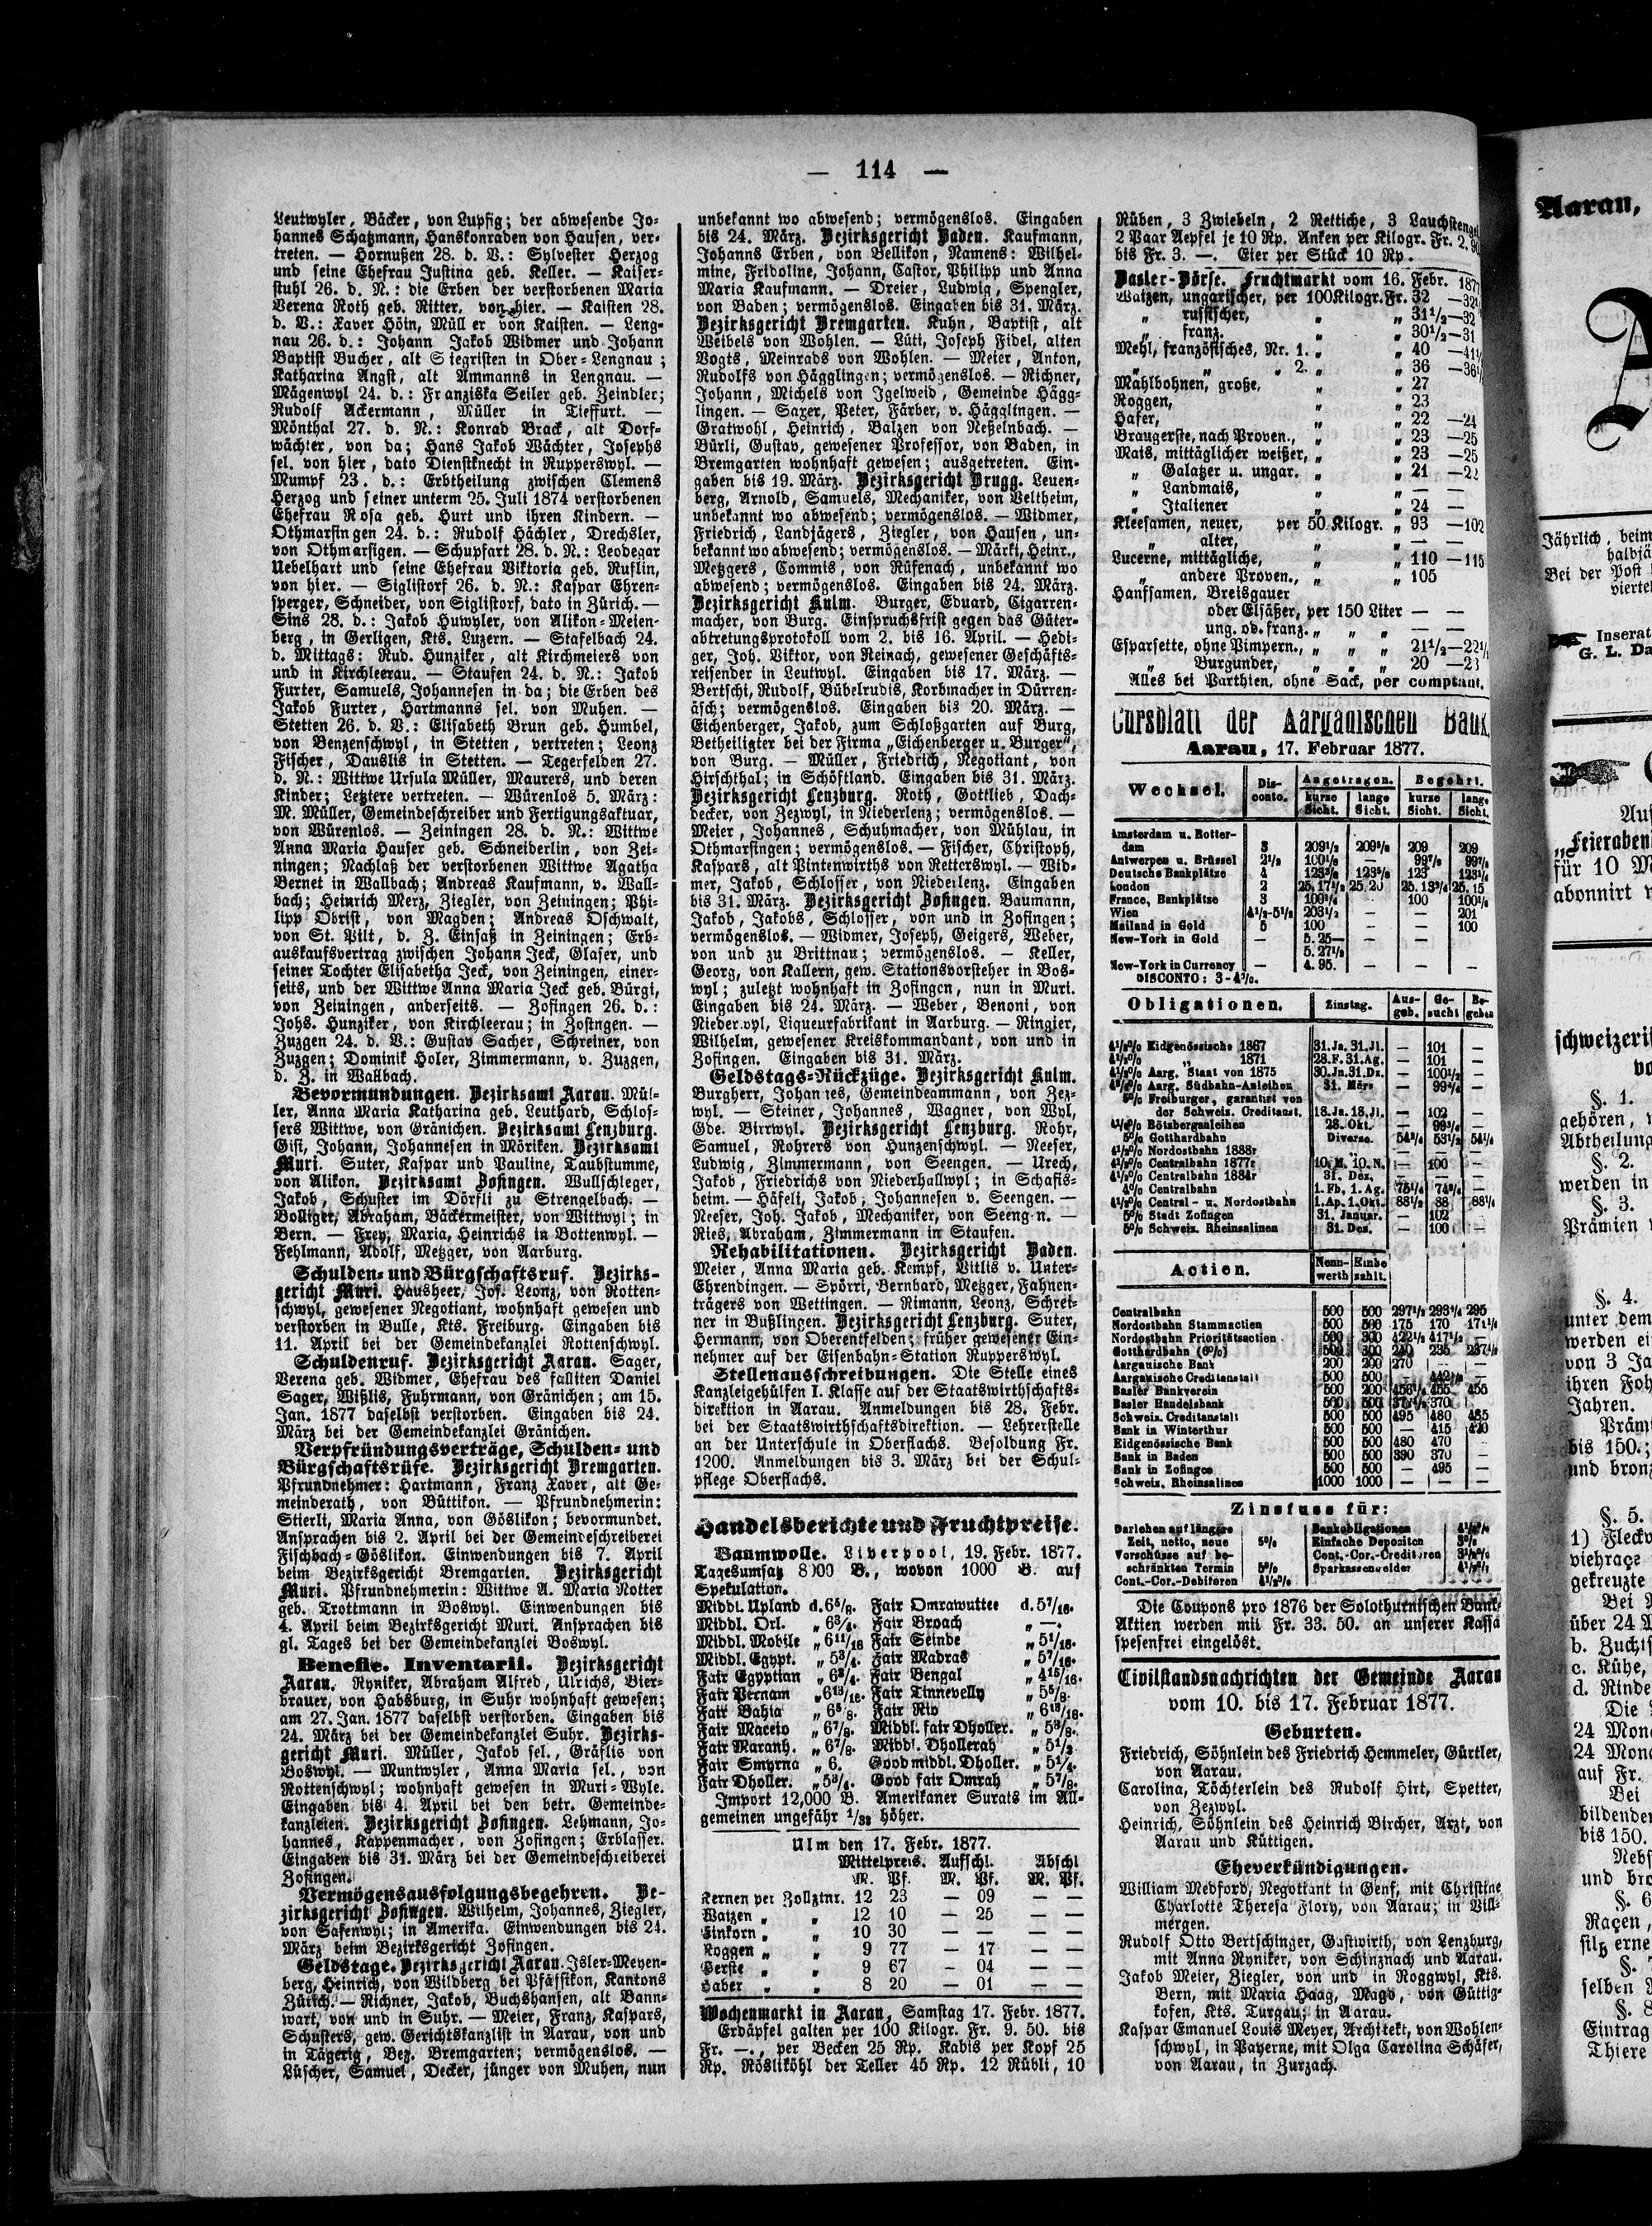 — 114 —
Leutwyler, Bäcker, von Lupfig; der abwesende Jo-
hannes Schatzmann, Hanskonraden von Hausen, ver-
treten. — Hornußen 28. d. V.: Sylvester Herzog
und seine Ehefrau Justina geb. Keller. — Kaiser-
stuhl 26. d. N.: die Erben der verstorbenen Maria
Verena Roth geb. Ritter, von hier. — Kaisten 28.
d. V.: Xaver Höin, Müller von Kaisten. — Leng-
nau 26. d.: Johann Jakob Widmer und Johann
Baptist Bucher, alt Siegristen in Ober-Lengnau;
Katharina Angst, alt Ammanns in Lengnau. —
Mägenwyl 24. d.: Franziska Seiler geb. Zeindler;
Rudolf Ackermann, Müller in Tieffurt. —
Mönthal 27. d. N.: Konrad Brack, alt Dorf-
wächter, von da; Hans Jakob Wächter, Josephs
sel. von hier, dato Dienstknecht in Rupperswyl. —
Mumpf 23. d.: Erbtheilung zwischen Clemens
Herzog und seiner unterm 25. Juli 1874 verstorbenen
Ehefrau Rosa geb. Hurt und ihren Kindern. —
Othmarsingen 24. d.: Rudolf Hächler, Drechsler,
von Othmarsigen. — Schupfart 28. d. N.: Leodegar
Uebelhart und seine Ehefrau Viktoria geb. Ruflin,
von hier. — Siglistorf 26. d. N.: Kaspar Ehren-
sperger, Schneider, von Siglistorf, dato in Zürich. —
Sins 28. d.: Jakob Huwyler, von Alikon-Meien-
berg, in Gerligen, Kts. Luzern. — Stafelbach 24.
d. Mittags: Rud. Hunziker, alt Kirchmeiers von
und in Kirchleerau. — Staufen 24. d. N.: Jakob
Furter, Samuels, Johannesen in da; die Erben des
Jakob Furter, Hartmanns sel. von Muhen. —
Stetten 26. d. V.: Elisabeth Brun geb. Humbel,
von Benzenschwyl, in Stetten, vertreten; Leonz
Fischer, Dauslis in Stetten. — Tegerfelden 27.
d. N.: Wittwe Ursula Müller, Maurers, und deren
Kinder; Letztere vertreten. — Würenlos 5. März:
M. Müller, Gemeindeschreiber und Fertigungsaktuar,
von Würenlos. — Zeiningen 28. d. N.: Wittwe
Anna Maria Hauser geb. Schneiderlin, von Zei-
ningen; Nachlaß der verstorbenen Wittwe Agatha
Bernet in Wallbach; Andreas Kaufmann, v. Wall-
bach; Heinrich Merz, Ziegler, von Zeiningen; Phi-
lipp Obrist, von Magden; Andreas Oschwalt,
von St. Pilt, d. Z. Einsaß in Zeiningen; Erb-
auskaufsvertrag zwischen Johann Jeck, Glaser, und
seiner Tochter Elisabetha Jeck, von Zeiningen, einer-
seits, und der Wittwe Anna Maria Jeck geb. Bürgi,
von Zeiningen, anderseits. — Zofingen 26. d.:
Johs. Hunziker, von Kirchleerau; in Zofingen. —
Zuzgen 24. d. V.: Gustav Sacher, Schreiner, von
Zuzgen; Dominik Holer, Zimmermann, v. Zuzgen,
d. Z. in Wallbach.
Bevormundungen. Bezirksamt Aarau. Mül-
ler, Anna Maria Katharina geb. Leuthard, Schlos-
sers Wittwe, von Gränichen. Bezirksamt Lenzburg.
Gist, Johann, Johannesen in Möriken. Bezirksamt
Muri. Suter, Kaspar und Pauline, Taubstumme,
von Alikon. Bezirksamt Zofingen. Wullschleger,
Jakob, Schuster im Dörfli zu Strengelbach. —
Bolliger, Abraham, Bäckermeister, von Wittwyl; in
Bern. — Frey, Maria, Heinrichs in Bottenwyl. —
Fehlmann, Adolf, Metzger, von Aarburg.
Schulden- und Bürgschaftsruf. Bezirks-
gericht Muri. Hausheer, Jos. Leonz, von Rotten-
schwyl, gewesener Negotiant, wohnhaft gewesen und
verstorben in Bulle, Kts. Freiburg. Eingaben bis
11. April bei der Gemeindekanzlei Rottenschwyl.
Schuldenruf. Bezirksgericht Aarau. Sager,
Verena geb. Widmer, Ehefrau des falliten Daniel
Sager, Wißlis, Fuhrmann, von Gränichen; am 15.
Jan. 1877 daselbst verstorben. Eingaben bis 24.
März bei der Gemeindekanzlei Gränichen.
Verpfründungsverträge, Schulden- und
Bürgschaftsrüfe. Bezirksgericht Bremgarten.
Pfrundnehmer: Hartmann, Franz Xaver, alt Ge-
meinderath, von Büttikon. — Pfrundnehmerin:
Stierli, Maria Anna, von Göslikon; bevormundet.
Ansprachen bis 2. April bei der Gemeindeschreiberei
Fischbach-Göslikon. Einwendungen bis 7. April
beim Bezirksgericht Bremgarten. Bezirksgericht
Muri. Pfrundnehmerin: Wittwe A. Maria Notter
geb. Trottmann in Boswyl. Einwendungen bis
4. April beim Bezirksgericht Muri. Ansprachen bis
gl. Tages bei der Gemeindekanzlei Boswyl.
Benefic. Inventarii. Bezirksgericht
Aarau. Ryniker, Abraham Alfred, Ulrichs, Bier-
brauer, von Habsburg, in Suhr wohnhaft gewesen;
am 27. Jan. 1877 daselbst verstorben. Eingaben bis
24. März bei der Gemeindekanzlei Suhr. Bezirks-
gericht Muri. Müller, Jakob sel., Gräflis von
Boswyl. — Muntwyler, Anna Maria sel., von
Rottenschwyl; wohnhaft gewesen in Muri-Wyle.
Eingaben bis 4. April bei den betr. Gemeinde-
kanzleien. Bezirksgericht Zofingen. Lehmann, Jo-
hannes, Kappenmacher, von Zofingen; Erblasser.
Eingaben bis 31. März bei der Gemeindeschreiberei
Zofingen.
Vermögensausfolgungsbegehren. Be-
zirksgericht Zofingen. Wilhelm, Johannes, Ziegler,
von Safenwyl; in Amerika. Einwendungen bis 24.
März beim Bezirksgericht Zofingen.
Geldstage. Bezirksgericht Aarau. Isler-Meyen-
berg, Heinrich, von Wildberg bei Pfäffikon, Kantons
Zürich. — Richner, Jakob, Buchshansen, alt Bann-
wart, von und in Suhr. — Meier, Franz, Kaspars,
Schusters, gew. Gerichtskanzlist in Aarau, von und
in Tägerig, Bez. Bremgarten; vermögenslos. —
Lüscher, Samuel, Decker, jünger von Muhen, nun
unbekannt wo abwesend; vermögenslos. Eingaben
bis 24. März. Bezirksgericht Baden. Kaufmann,
Johanns Erben, von Bellikon, Namens: Wilhel-
mine, Fridoline, Johann, Castor, Philipp und Anna
Maria Kaufmann. — Dreier, Ludwig, Spengler,
von Baden; vermögenslos. Eingaben bis 31. März.
Bezirksgericht Bremgarten. Kuhn, Baptist, alt
Weibels von Wohlen. — Lüti, Joseph Fidel, alten
Vogts, Meinrads von Wohlen. — Meier, Anton,
Rudolfs von Hägglingen; vermögenslos. — Richner,
Johann, Michels von Igelweid, Gemeinde Hägg-
lingen. — Saxer, Peter, Färber, v. Hägglingen. —
Gratwohl, Heinrich, Balzen von Neßelnbach. —
Bürli, Gustav, gewesener Professor, von Baden, in
Bremgarten wohnhaft gewesen; ausgetreten. Ein-
gaben bis 19. März. Bezirksgericht Brugg. Leuen-
berg, Arnold, Samuels, Mechaniker, von Veltheim,
unbekannt wo abwesend; vermögenslos. — Widmer,
Friedrich, Landjägers, Ziegler, von Hausen, un-
bekannt wo abwesend; vermögenslos. — Märki, Heinr.,
Metzgers, Commis, von Rüfenach, unbekannt wo
abwesend; vermögenslos. Eingaben bis 24. März.
Bezirksgericht Kulm. Burger, Eduard, Cigarren-
macher, von Burg. Einspruchsfrist gegen das Güter-
abtretungsprotokoll vom 2. bis 16. April. — Hedi-
ger, Joh. Viktor, von Reinach, gewesener Geschäfts-
reisender in Leutwyl. Eingaben bis 17. März. —
Bertschi, Rudolf, Bübelrudis, Korbmacher in Dürren-
äsch; vermögenslos. Eingaben bis 20. März. —
Eichenberger, Jakob, zum Schloßgarten auf Burg,
Betheiligter bei der Firma „Eichenberger u. Burger“,
von Burg. — Müller, Friedrich, Negotiant, von
Hirschthal; in Schöftland. Eingaben bis 31. März.
Bezirksgericht Lenzburg. Roth, Gottlieb, Dach-
decker, von Zezwyl, in Niederlenz; vermögenslos. —
Meier, Johannes, Schuhmacher, von Mühlau, in
Othmarsingen; vermögenslos. — Fischer, Christoph,
Kaspars, alt Pintenwirths von Retterswyl. — Wid-
mer, Jakob, Schlosser, von Niederlenz. Eingaben
bis 31. März. Bezirksgericht Zofingen. Baumann,
Jakob, Jakobs, Schlosser, von und in Zofingen;
vermögenslos. — Widmer, Joseph, Geigers, Weber,
von und zu Brittnau; vermögenslos. — Keller,
Georg, von Kallern, gew. Stationsvorsteher in Bos-
wyl; zuletzt wohnhaft in Zofingen, nun in Muri.
Eingaben bis 24. März. — Weber, Benoni, von
Niederwyl, Liqueurfabrikant in Aarburg. — Ringier,
Wilhelm, gewesener Kreiskommandant, von und in
Zofingen. Eingaben bis 31. März.
Geldstags-Rückzüge. Bezirksgericht Kulm.
Burgherr, Johannes, Gemeindeammann, von Zez-
wyl. — Steiner, Johannes, Wagner, von Wyl,
Gde. Birrwyl. Bezirksgericht Lenzburg. Rohr,
Samuel, Rohrers von Hunzenschwyl. — Neeser,
Ludwig, Zimmermann, von Seengen. — Urech,
Jakob, Friedrichs von Niederhallwyl; in Schafis-
heim. — Häfeli, Jakob, Johannesen v. Seengen. —
Neeser, Joh. Jakob, Mechaniker, von Seengen. —
Ries, Abraham, Zimmermann in Staufen.
Rehabilitationen. Bezirksgericht Baden.
Meier, Anna Maria geb. Kempf, Vitlis v. Unter-
Ehrendingen. — Spörri, Bernhard, Metzger, Fahnen-
trägers von Wettingen. — Rimann, Leonz, Schrei-
ner in Bußlingen. Bezirksgericht Lenzburg. Suter,
Hermann, von Oberentfelden; früher gewesener Ein-
nehmer auf der Eisenbahn-Station Rupperswyl.
Stellenausschreibungen. Die Stelle eines
Kanzleigehülfen I. Klasse auf der Staatswirthschafts-
direktion in Aarau. Anmeldungen bis 28. Febr.
bei der Staatswirthschaftsdirektion. — Lehrerstelle
an der Unterschule in Oberflachs. Besoldung Fr.
1200. Anmeldungen bis 3. März bei der Schul-
pflege Oberflachs.
Handelsberichte und Fruchtpreise.
Baumwolle. Liverpool, 19. Febr. 1877.
Tagesumsatz 8000 B., wovon 1000 B. auf
Spekulation.
Middl. Upland d. 6 5/8. Fair Omrawuttee d. 5 7/16.
Middl. Orl. „ 6 3/4. Fair Broach „ —.
Middl. Mobile „ 6 11/16 Fair Seinde „ 5 1/16.
Middl. Egypt. „ 5 3/4. Fair Madras „ 5 7/16.
Fair Egyptian „ 6 3/4. Fair Bengal „ 4 15/16.
Fair Pernam „ 6 13/16. Fair Tinnevelly „ 5 5/8.
Fair Bahia „ 6 5/8. Fair Rio „ 6 13/16.
Fair Maceio „ 6 7/8. Middl. fair Dholler. „ 5 3/8.
Fair Maranh. „ 6 7/8. Middl. Dhollerah „ 5 1/2.
Fair Smyrna „ 6. Good middl. Dholler. „ 5 1/4.
Fair Dholler. „ 5 3/4. Good fair Omrah „ 5 7/8.
Import 12,000 B. Amerikaner Surats im All-
gemeinen ungefähr 1/32 höher.
Ulm den 17. Febr. 1877.
Mittelpreis. Aufschl. Abschl
M. Pf. M. Pf. M. Pf.
Kernen per Zollztnr. 12 23 — 09 — —
Waizen „ „ 12 10 — 25 — —
Einkorn „ „ 10 30 — — — —
Roggen „ „ 9 77 — 17 — —
Gerste „ „ 9 67 — 04 — —
Haber „ „ 8 20 — 01 — —
Wochenmarkt in Aarau, Samstag 17. Febr. 1877.
Erdäpfel galten per 100 Kilogr. Fr. 9. 50. bis
Fr. —., per Becken 25 Rp. Kabis per Kopf 25
Rp. Rösliköhl der Teller 45 Rp. 12 Rübli, 10
Rüben, 3 Zwiebeln, 2 Rettiche, 3 Lauchstengel
2 Paar Aepfel je 10 Rp. Anken per Kilogr. Fr. 2. 90
bis Fr. 3. —. Eier per Stück 10 Rp.
Basler-Börse. Fruchtmarkt vom 16. Febr. 1877
Waizen, ungarischer, per 100 Kilogr. Fr. 32 —32
„ russischer, „ „ 31 1/2—32
„ franz. „ „ 30 1/2—31
Mehl, französisches, Nr. 1. „ „ 40 —41
„ „ „ 2. „ „ 36 —36
Mahlbohnen, große, „ „ 27
Roggen, „ „ 23
Hafer, „ „ 22 —24
Braugerste, nach Proven., „ „ 23 —25
Mais, mittäglicher weißer, „ „ 23 —25
„ Galatzer u. ungar. „ „ 21 —22
„ Landmais, „ „ — —
„ Italiener „ „ 24 —
Kleesamen, neuer, per 50 Kilogr. „ 93 —102
„ alter, „ „ — —
Lucerne, mittägliche, „ „ 110 —115
„ andere Proven., „ „ 105
Hanfsamen, Breisgauer
oder Elsäßer, per 150 Liter — —
ung. od. franz. „ „ „ — —
Esparsette, ohne Pimpern., „ „ „ 21 1/2—22
„ Burgunder, „ „ „ 20 —23
Alles bei Parthien, ohne Sack, per comptant.
Cursblatt der Aargauischen Bank.
Aarau, 17. Februar 1877.
Wechsel. Dis-conto. Angetragen. Begehrt.
kurze Sicht. lange Sicht. kurze Sicht. lange Sicht.
Amsterdam u. Rotter-
dam 3 209 1/2 209 5/8 209 209
Antwerpen u. Brüssel 2 1/2 100 1/8 — 99 7/8 99 7/8
Deutsche Bankplätze 4 123 3/8 123 5/8 123 123 1/4
London 2 25.17 1/2 25.20 25.13 3/4 25.15
France, Bankplätze 3 100 1/4 — 100 100 1/8
Wien 4 1/2-5 1/2 203 1/2 — — 201
Mailand in Gold 5 100 — — 100
New-York in Gold — 5.25— — —
5.27 1/2
New-York in Currency — 4.95. — — —
DISCONTO: 3-4%.
Obligationen. Zinstag. Aus-geb. Ge-sucht Be-geben
4 1/2% Eidgenössische 1867 31.Ja. 31.Jl. — 101 —
4 1/2% „ 1871 28.F. 31.Ag. — 101 —
4 1/2% Aarg. Staat von 1875 30.Jn. 31.Dz. — 100 1/2 —
Aarg. Südbahn-Anleihen 31. März — 99 3/4 —
5% Freiburger, garantirt von
der Schweiz. Creditanst. 18.Ja. 18.Jl. — 102 —
4 1/2% Bötzberganleihen 28. Okt. — 99 3/4 —
5% Gotthardbahn Diverse. 54 3/4 53 1/2 54 1/4
4 1/2% Nordostbahn 1888r — — —
4 1/2% Centralbahn 1877r 10. M. 10. N. — 100 —
4 1/2% Centralbahn 1884r 31. Dez. — — —
4% Centralbahn 1. Fb. 1. Ag. 75 1/4 74 3/4
4 1/2% Central- u. Nordostbahn 1.Ap. 1.Okt. 88 1/2 88 88 1/4
5% Stadt Zofingen 31. Januar. — 102 —
5% Schweiz. Rheinsalinen 31. Dez. — 100 —
Actien. Nenn-werth Einbezahlt.
Centralbahn 500 500 297 1/2 293 3/4 295
Nordostbahn Stammactien 500 500 175 170 171 1/4
Nordostbahn Prioritätsactien 500 300 422 1/2 417 1/2 —
Gotthardbahn (6%) 500 300 240 235 237 1/2
Aargauische Bank 200 200 270 — —
Aargauische Creditanstalt 500 500 442 1/2 —
Basler Bankverein 500 200 456 1/4 455 455
Basler Handelsbank 500 500 370
Schweiz. Creditanstalt 500 500 495 480 485
Bank in Winterthur 500 500 — 415 420
Eidgenössische Bank 500 500 480 470
Bank in Baden 500 500 390 370 —
Bank in Zofingen 500 500 — 495 —
Schweiz. Rheinsalinen 1000 1000 — — —
Zinsfuss für:
Darlehen auf längere
Zeit, netto, neue 5%
Vorschüsse auf be-
schränkten Termin 5%
Cont.-Cor.-Debitoren 4 1/2%
Bankobligationen 4 1/2%
Einfache Depositen 3%
Cont.-Cor.-Creditoren 3 1/2%
Sparkassengelder 4 1/2%
Die Coupons pro 1876 der Solothurnischen Bank-
Aktien werden mit Fr. 33. 50. an unserer Kassa
spesenfrei eingelöst.
Civilstandsnachrichten der Gemeinde Aarau
vom 10. bis 17. Februar 1877.
Geburten.
Friedrich, Söhnlein des Friedrich Hemmeler, Gürtler,
von Aarau.
Carolina, Töchterlein des Rudolf Hirt, Spetter,
von Zezwyl.
Heinrich, Söhnlein des Heinrich Bircher, Arzt, von
Aarau und Küttigen.
Eheverkündigungen.
William Medford, Negotiant in Genf, mit Christine
Charlotte Theresa Flory, von Aarau; in Vill-
mergen.
Rudolf Otto Bertschinger, Gastwirth, von Lenzburg,
mit Anna Ryniker, von Schinznach und Aarau.
Jakob Meier, Ziegler, von und in Roggwyl, Kts.
Bern, mit Maria Haag, Magd, von Güttig-
kofen, Kts. Turgau; in Aarau.
Kaspar Emanuel Louis Meyer, Architekt, von Wohlen-
schwyl, in Payerne, mit Olga Carolina Schäfer,
von Aarau, in Zurzach.
Aarau,
A
Jährlich, beim
halbjä
Bei der Post
viertel
Inserat
G. L. Da
Auf
„Feieraben
für 10 M
abonnirt
schweizeri
vo
§. 1.
gehören,
Abtheilung
§. 2.
werden in
§. 3.
Prämien
§. 4.
unter dem
werden ei
von 3 Ja
ihren Foh
Jahren.
Präm
bis 150.;
und bronz
§. 5.
1) Fleckv
viehraçe
gekreuzte
Bei
über 24 A
b. Zuchts
c. Kühe,
d. Rinde
Die
24 Mon
24 Mon
auf Fr.
Bei
bildende
bis 150.
Nebs
und bro
§. 6
Raçen,
silb erne
§. 7
selben
§. 8
Eintrag
Thiere